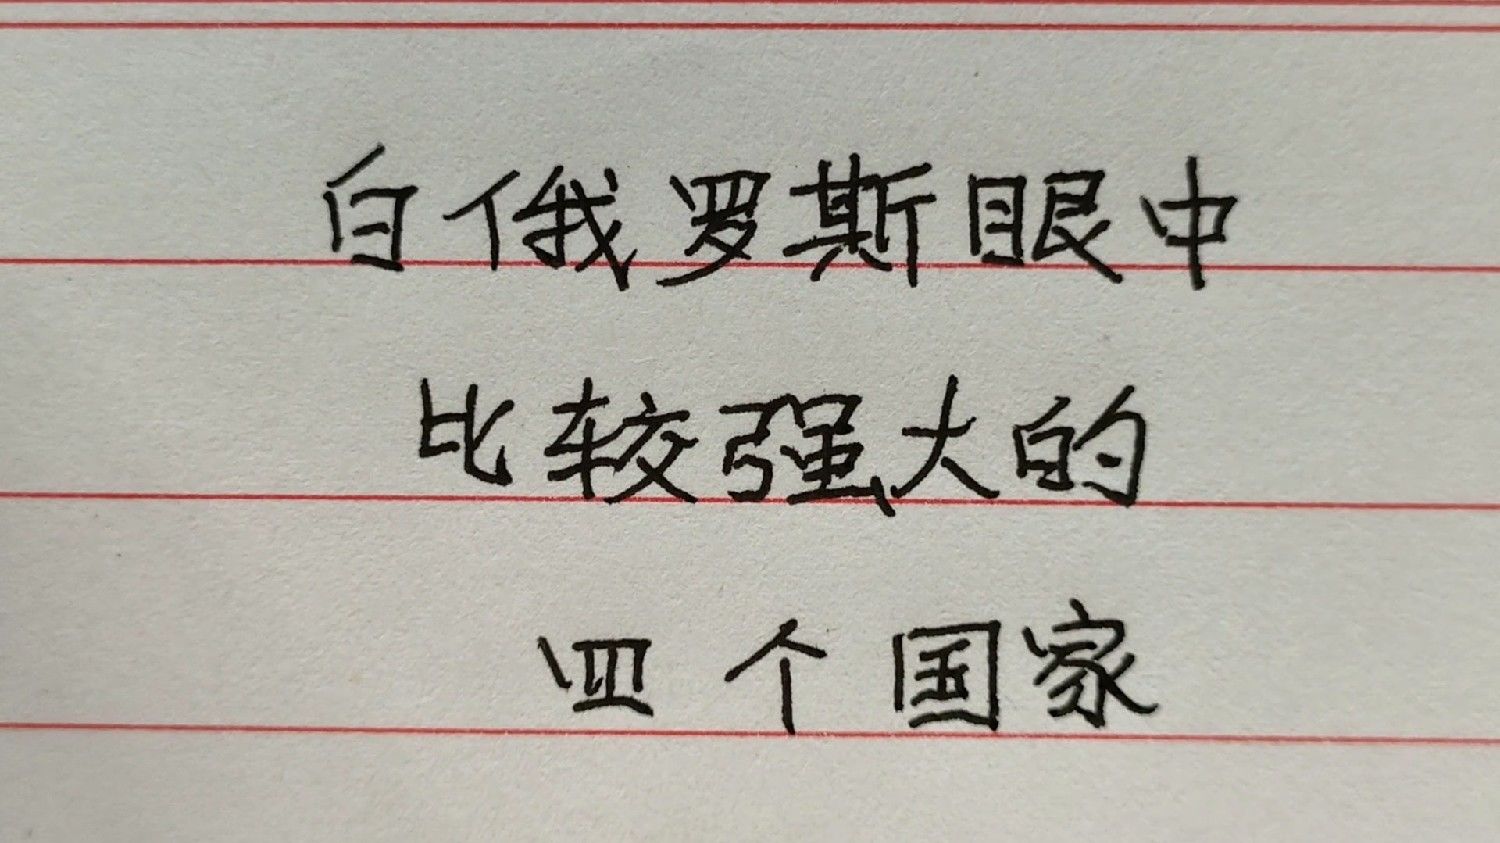 白俄罗斯眼中
比较强大的
四个国家